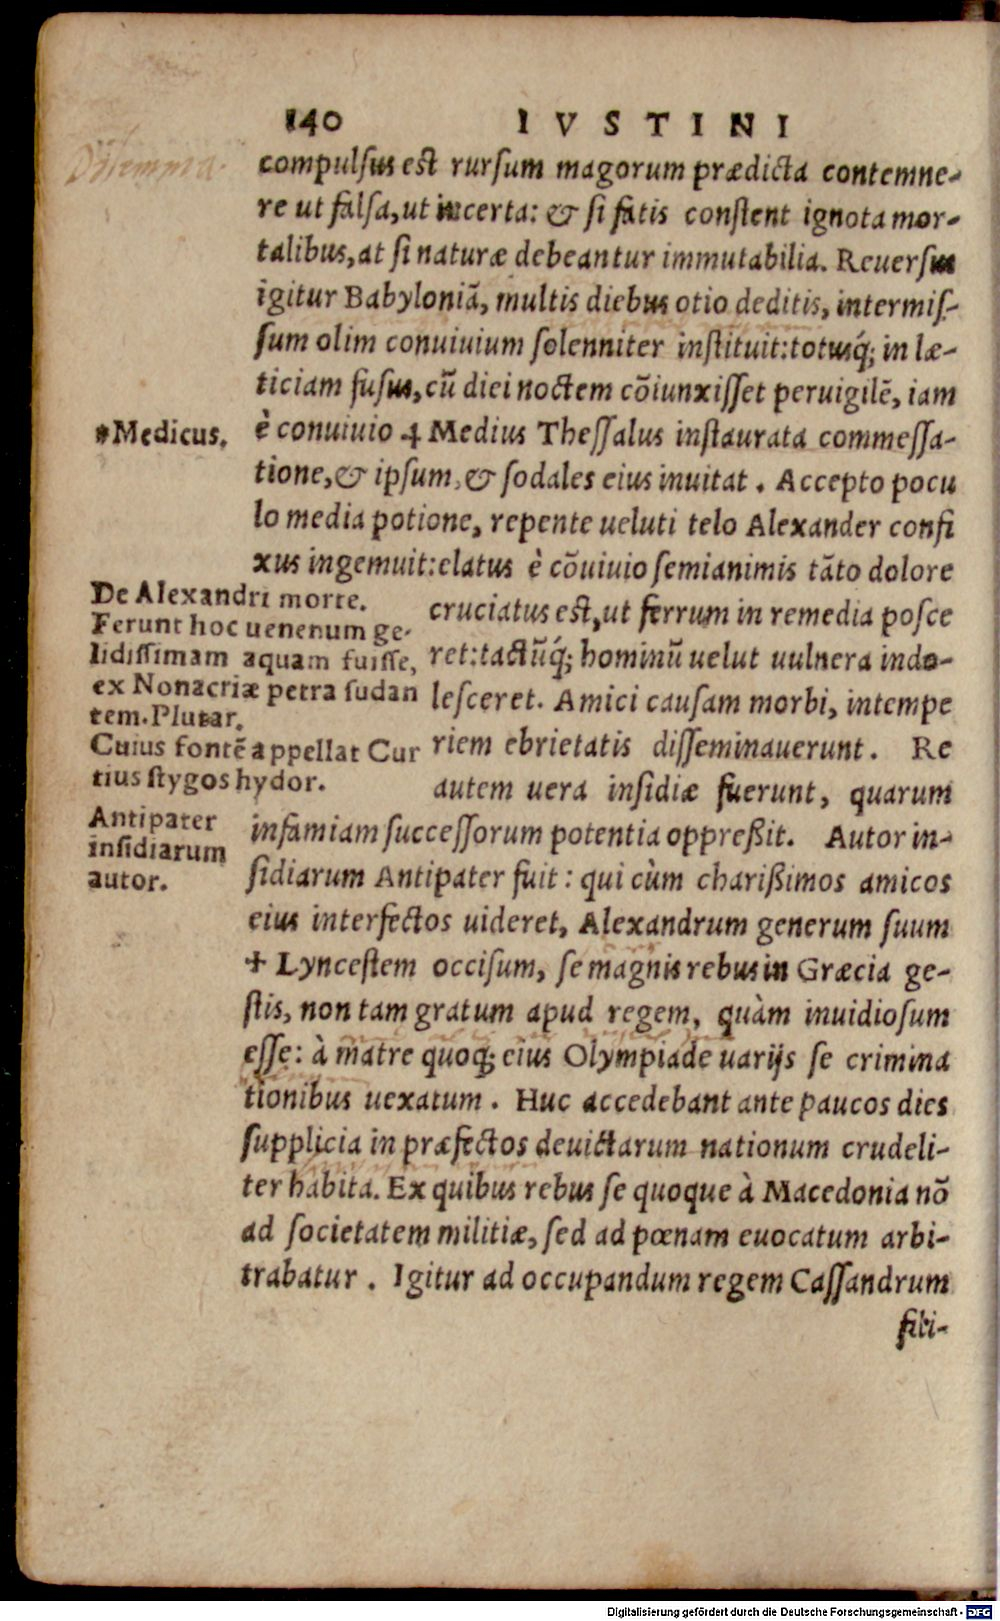 140 IVSTINI
Dilemma.
compulsus est rursum magorum prædicta contemne-
re ut falsa, ut incerta: & si fatis constent ignota mor-
talibus, at si naturæ debeantur immutabilia. Reuersus
igitur Babyloniã, multis diebus otio deditis, intermis-
sum olim conuiuium solenniter instituit: totusq́; in læ-
ticiam fusus, cũ diei noctem cõiunxisset peruigilẽ, iam
*Medicus.
è conuiuio Medius Thessalus instaurata commessa-
tione, & ipsum, & sodales eius inuitat. Accepto pocu
lo media potione, repente ueluti telo Alexander confi
xus ingemuit: elatus è cõuiuio semianimis tãto dolore
De Alexandri morte.
Ferunt hoc uenenum ge-
lidissimam aquam fuisse,
ex Nonacriæ petra sudan
tem. Plutar.
Cuius fontẽ appellat Cur
tius stygos hydor.
cruciatus est, ut ferrum in remedia posce
ret: tactũq́; hominũ uelut uulnera indo-
lesceret. Amici causam morbi, intempe
riem ebrietatis disseminauerunt. Re
autem uera insidiæ fuerunt, quarum
Antipater
insidiarum
autor.
infamiam successorum potentia oppreßit. Autor in-
sidiarum Antipater fuit: qui cùm charißimos amicos
eius interfectos uideret, Alexandrum generum suum
+ Lyncestem occisum, se magnis rebus in Græcia ge-
stis, non tam gratum apud regem, quàm inuidiosum
esse: à matre quoq; eius Olympiade uarijs se crimina
tionibus uexatum. Huc accedebant ante paucos dies
supplicia in præfectos deuictarum nationum crudeli-
ter habita. Ex quibus rebus se quoque à Macedonia nõ
ad societatem militiæ, sed ad pœnam euocatum arbi-
trabatur. Igitur ad occupandum regem Cassandrum
fili-
Digitalisierung gefördert durch die Deutsche Forschungsgemeinschaft - DFG